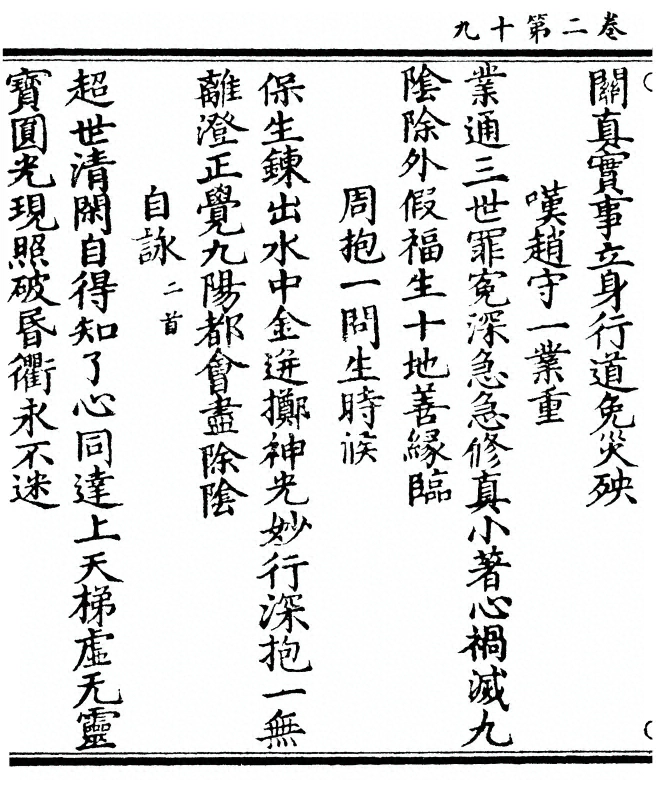 卷二第十九
關真實事立身行道免災殃
嘆趙守一業重
業通三世罪寃深急急修真小著心禍滅九
陰除外假福生十地善緣臨
周抱一問生時候
保生鍊出水中金迸擲神光妙行深抱一無
離澄正覺九陽都會盡除陰
自詠二首
超世清閑自得知了心同達上天梯虛无靈
寳圓光現照破昏衢永不迷